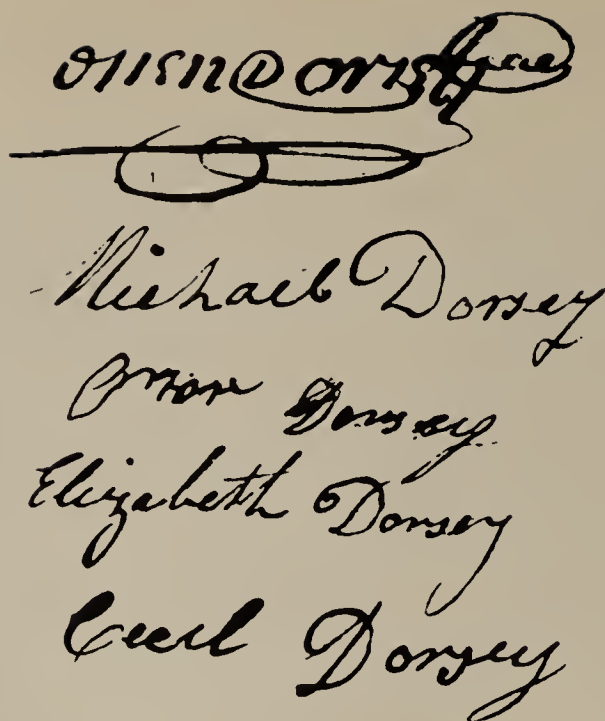 Dorsey
Michael Dorsey
Dorsey
Elizabeth Dorsey
Cecil Dorsey